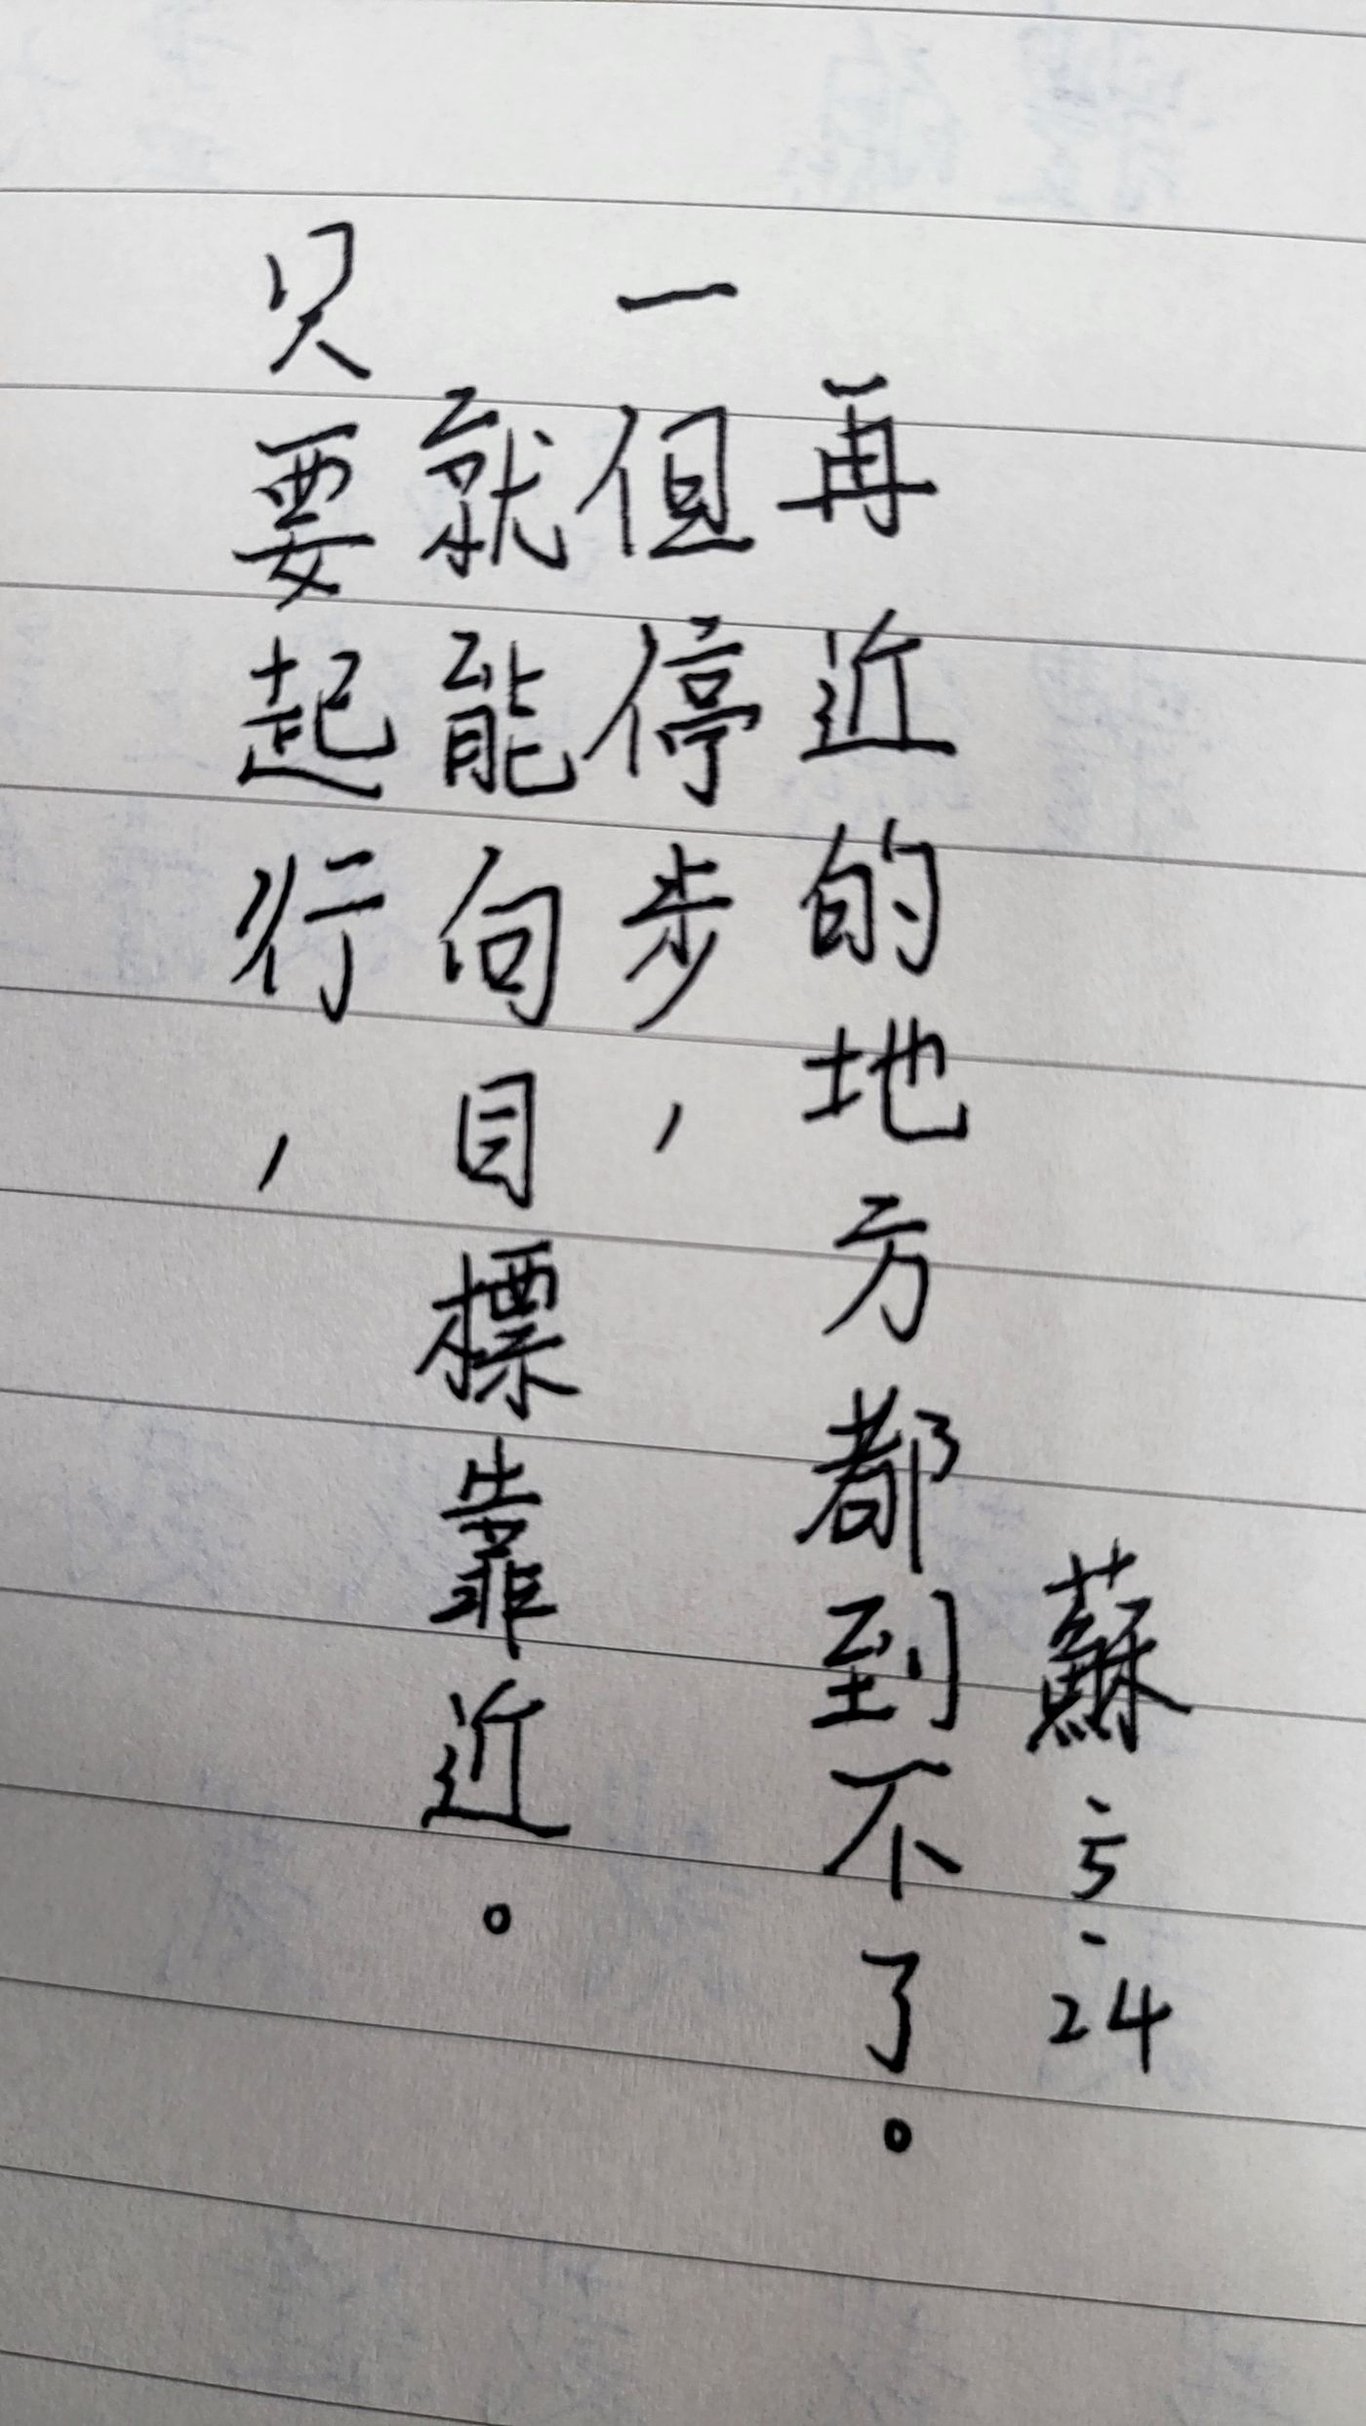 只要起行，
就能向目標靠近。
一但停步，
再近的地方都到不了。
蘇.5.24